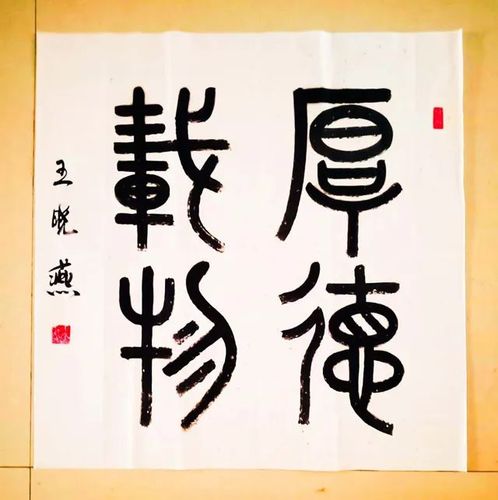 厚德
載物
王晓燕